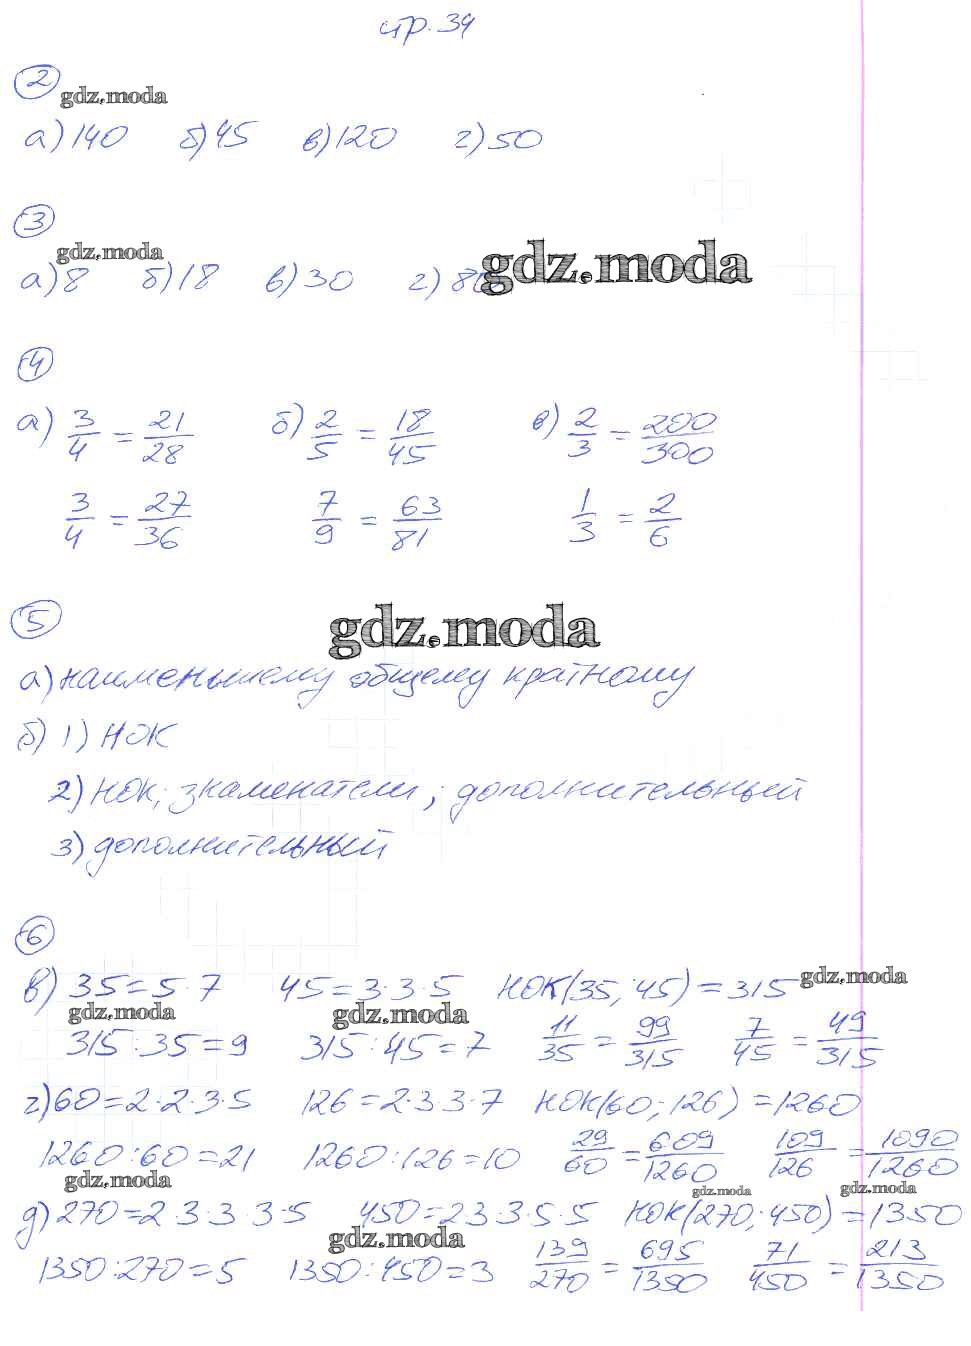 стр. 34
2
gdz.moda
а) 140 б) 45 в) 120 г) 50
3
gdz.moda
gdz.moda
а) 8 б) 18 в) 30 г)
4
а) 3/4 = 21/28 б) 2/5 = 18/45 в) 2/3 = 200/300
3/4 = 27/36 7/9 = 63/81 1/3 = 2/6
5
gdz.moda
а) наименьшему общему кратному
б) 1) НОК
2) НОК; знаменатели; дополнительный
3) дополнительный
6
в) 35 = 5 · 7 45 = 3 · 3 · 5 НОК(35; 45) = 315 gdz.moda
gdz.moda gdz.moda
315 : 35 = 9 315 : 45 = 7 11/35 = 99/315 7/45 = 49/315
г) 60 = 2 · 2 · 3 · 5 126 = 2 · 3 3 · 7 НОК(60; 126) = 1260
1260 : 60 = 21 1260 : 126 = 10 29/60 = 609/1260 109/126 = 1090/1260
gdz.moda gdz.moda gdz.moda
д) 270 = 2 3 · 3 · 3 · 5 450 = 2 3 · 3 · 5 · 5 НОК(270; 450) = 1350
gdz.moda
1350 : 270 = 5 1350 : 450 = 3 139/270 = 695/1350 71/450 = 213/1350